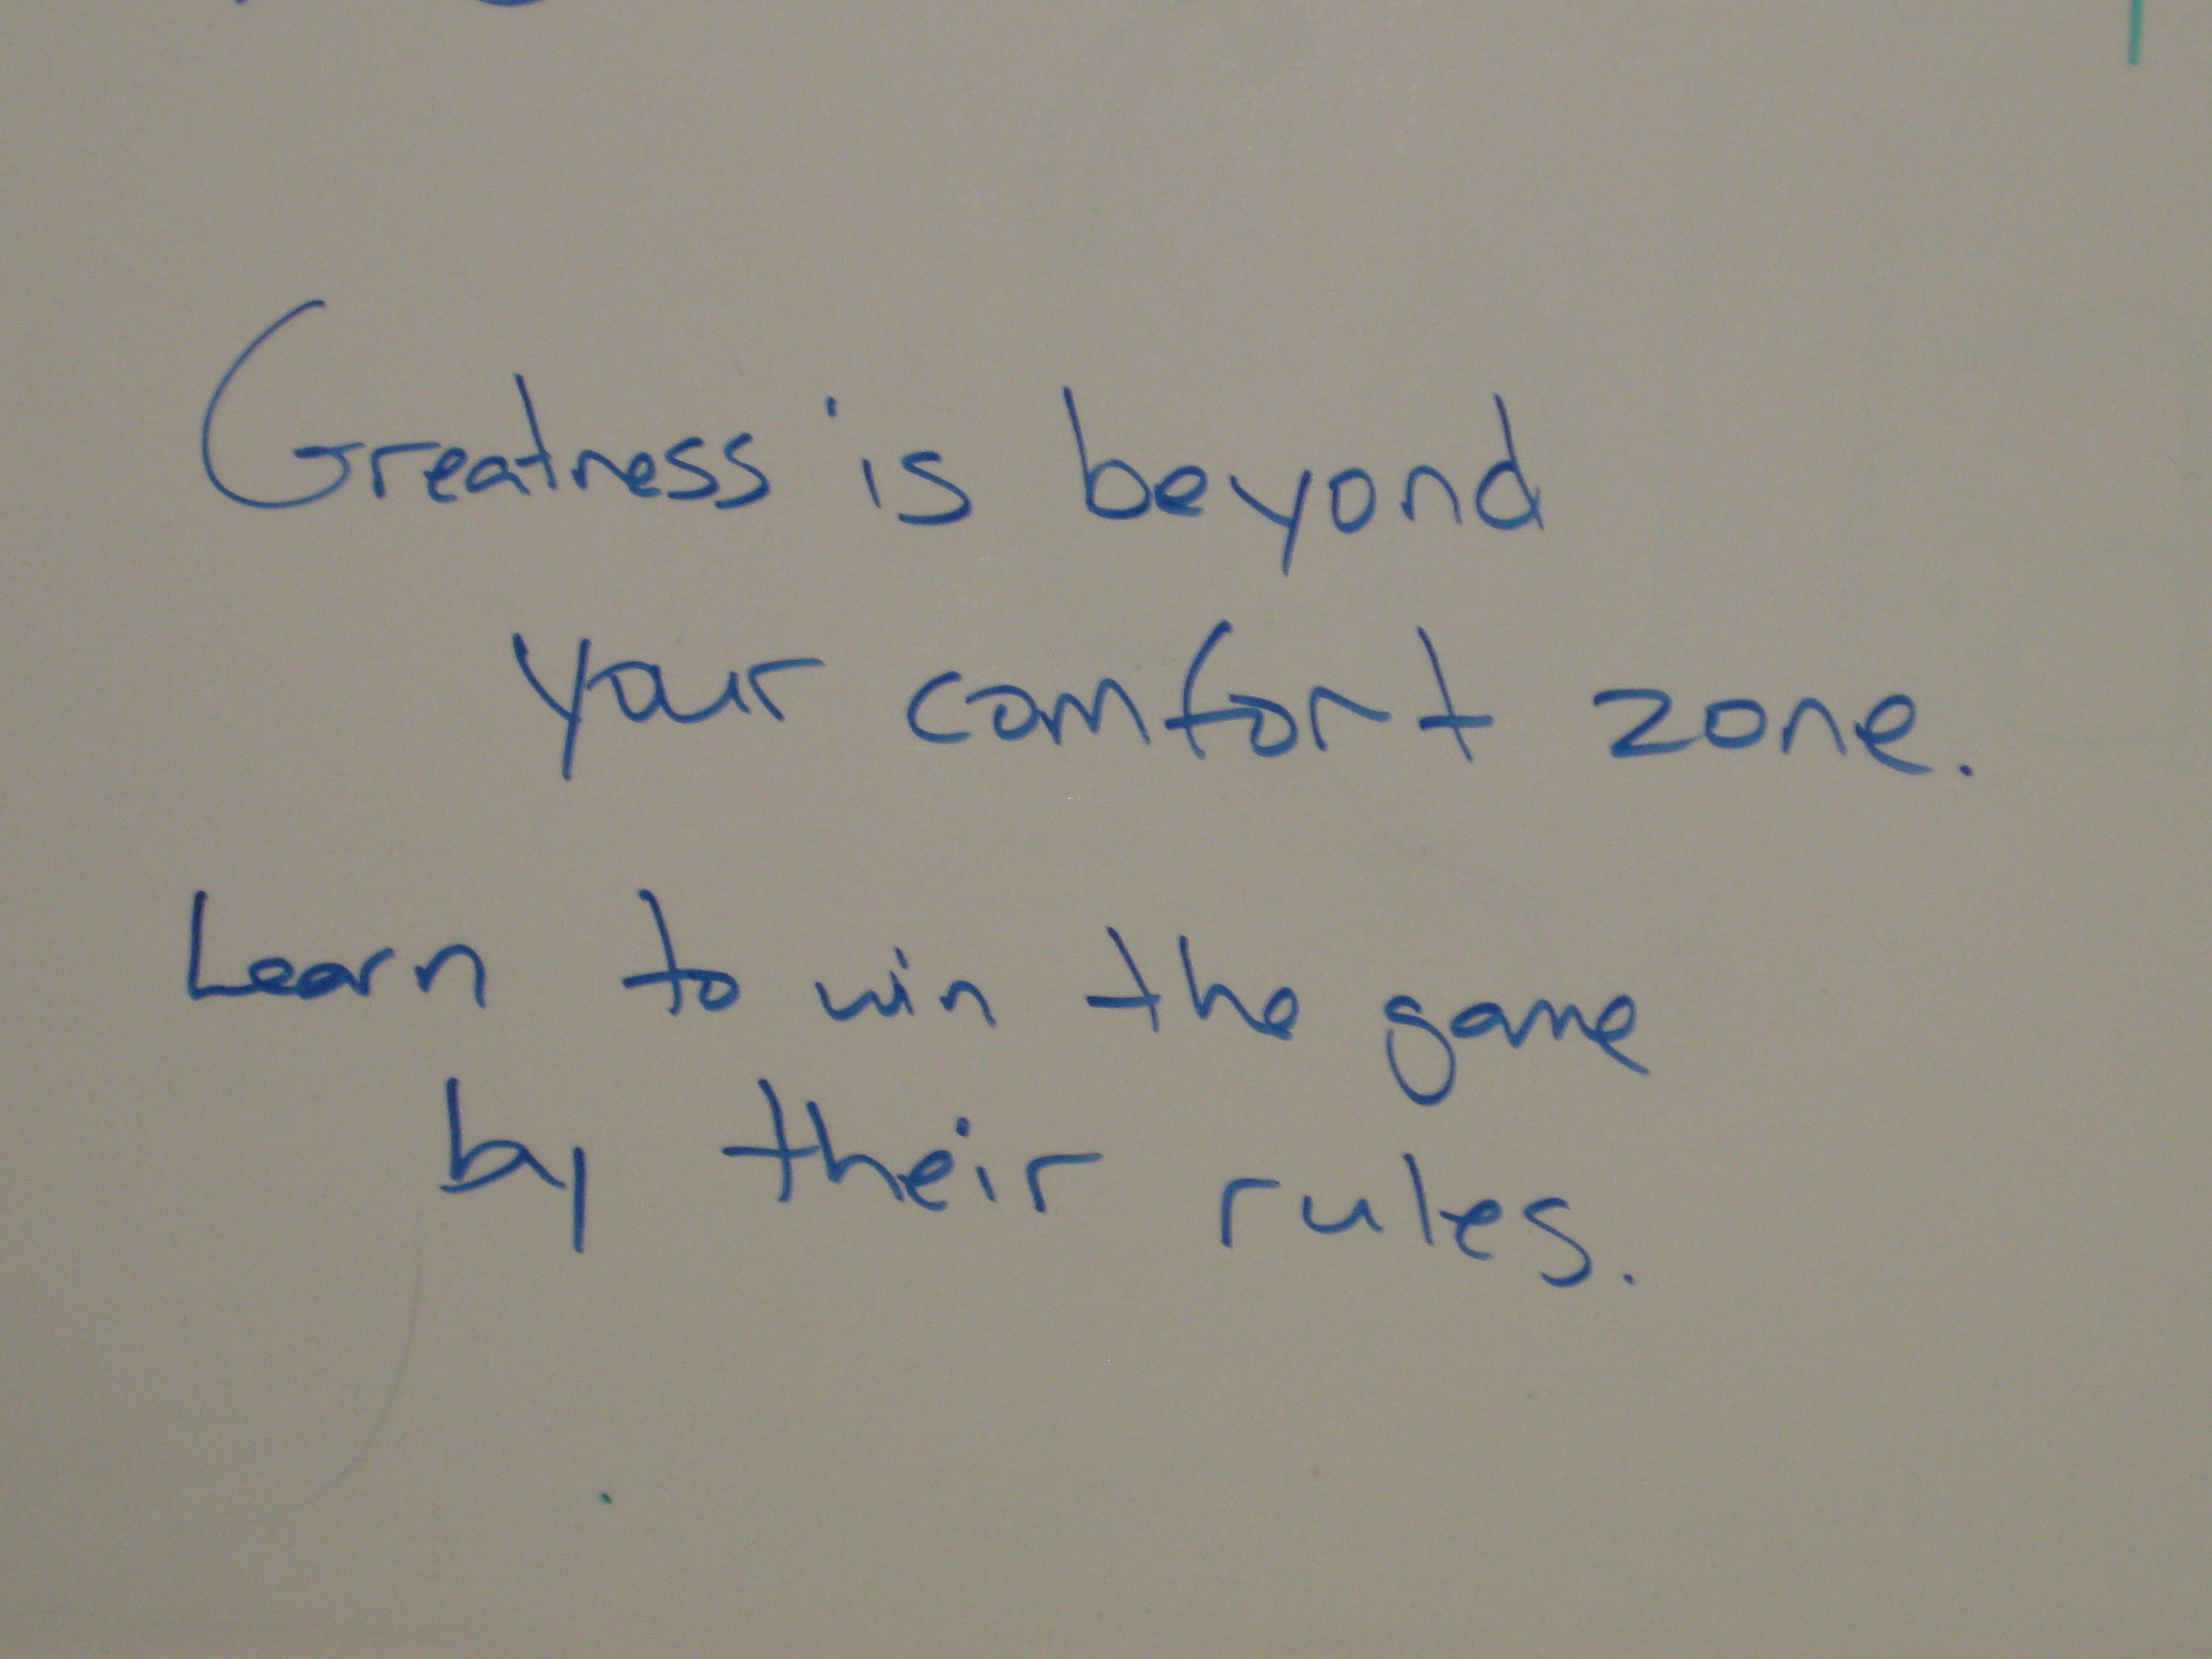 Greatness is beyond
your comfort zone.
Learn to win the game
by their rules.